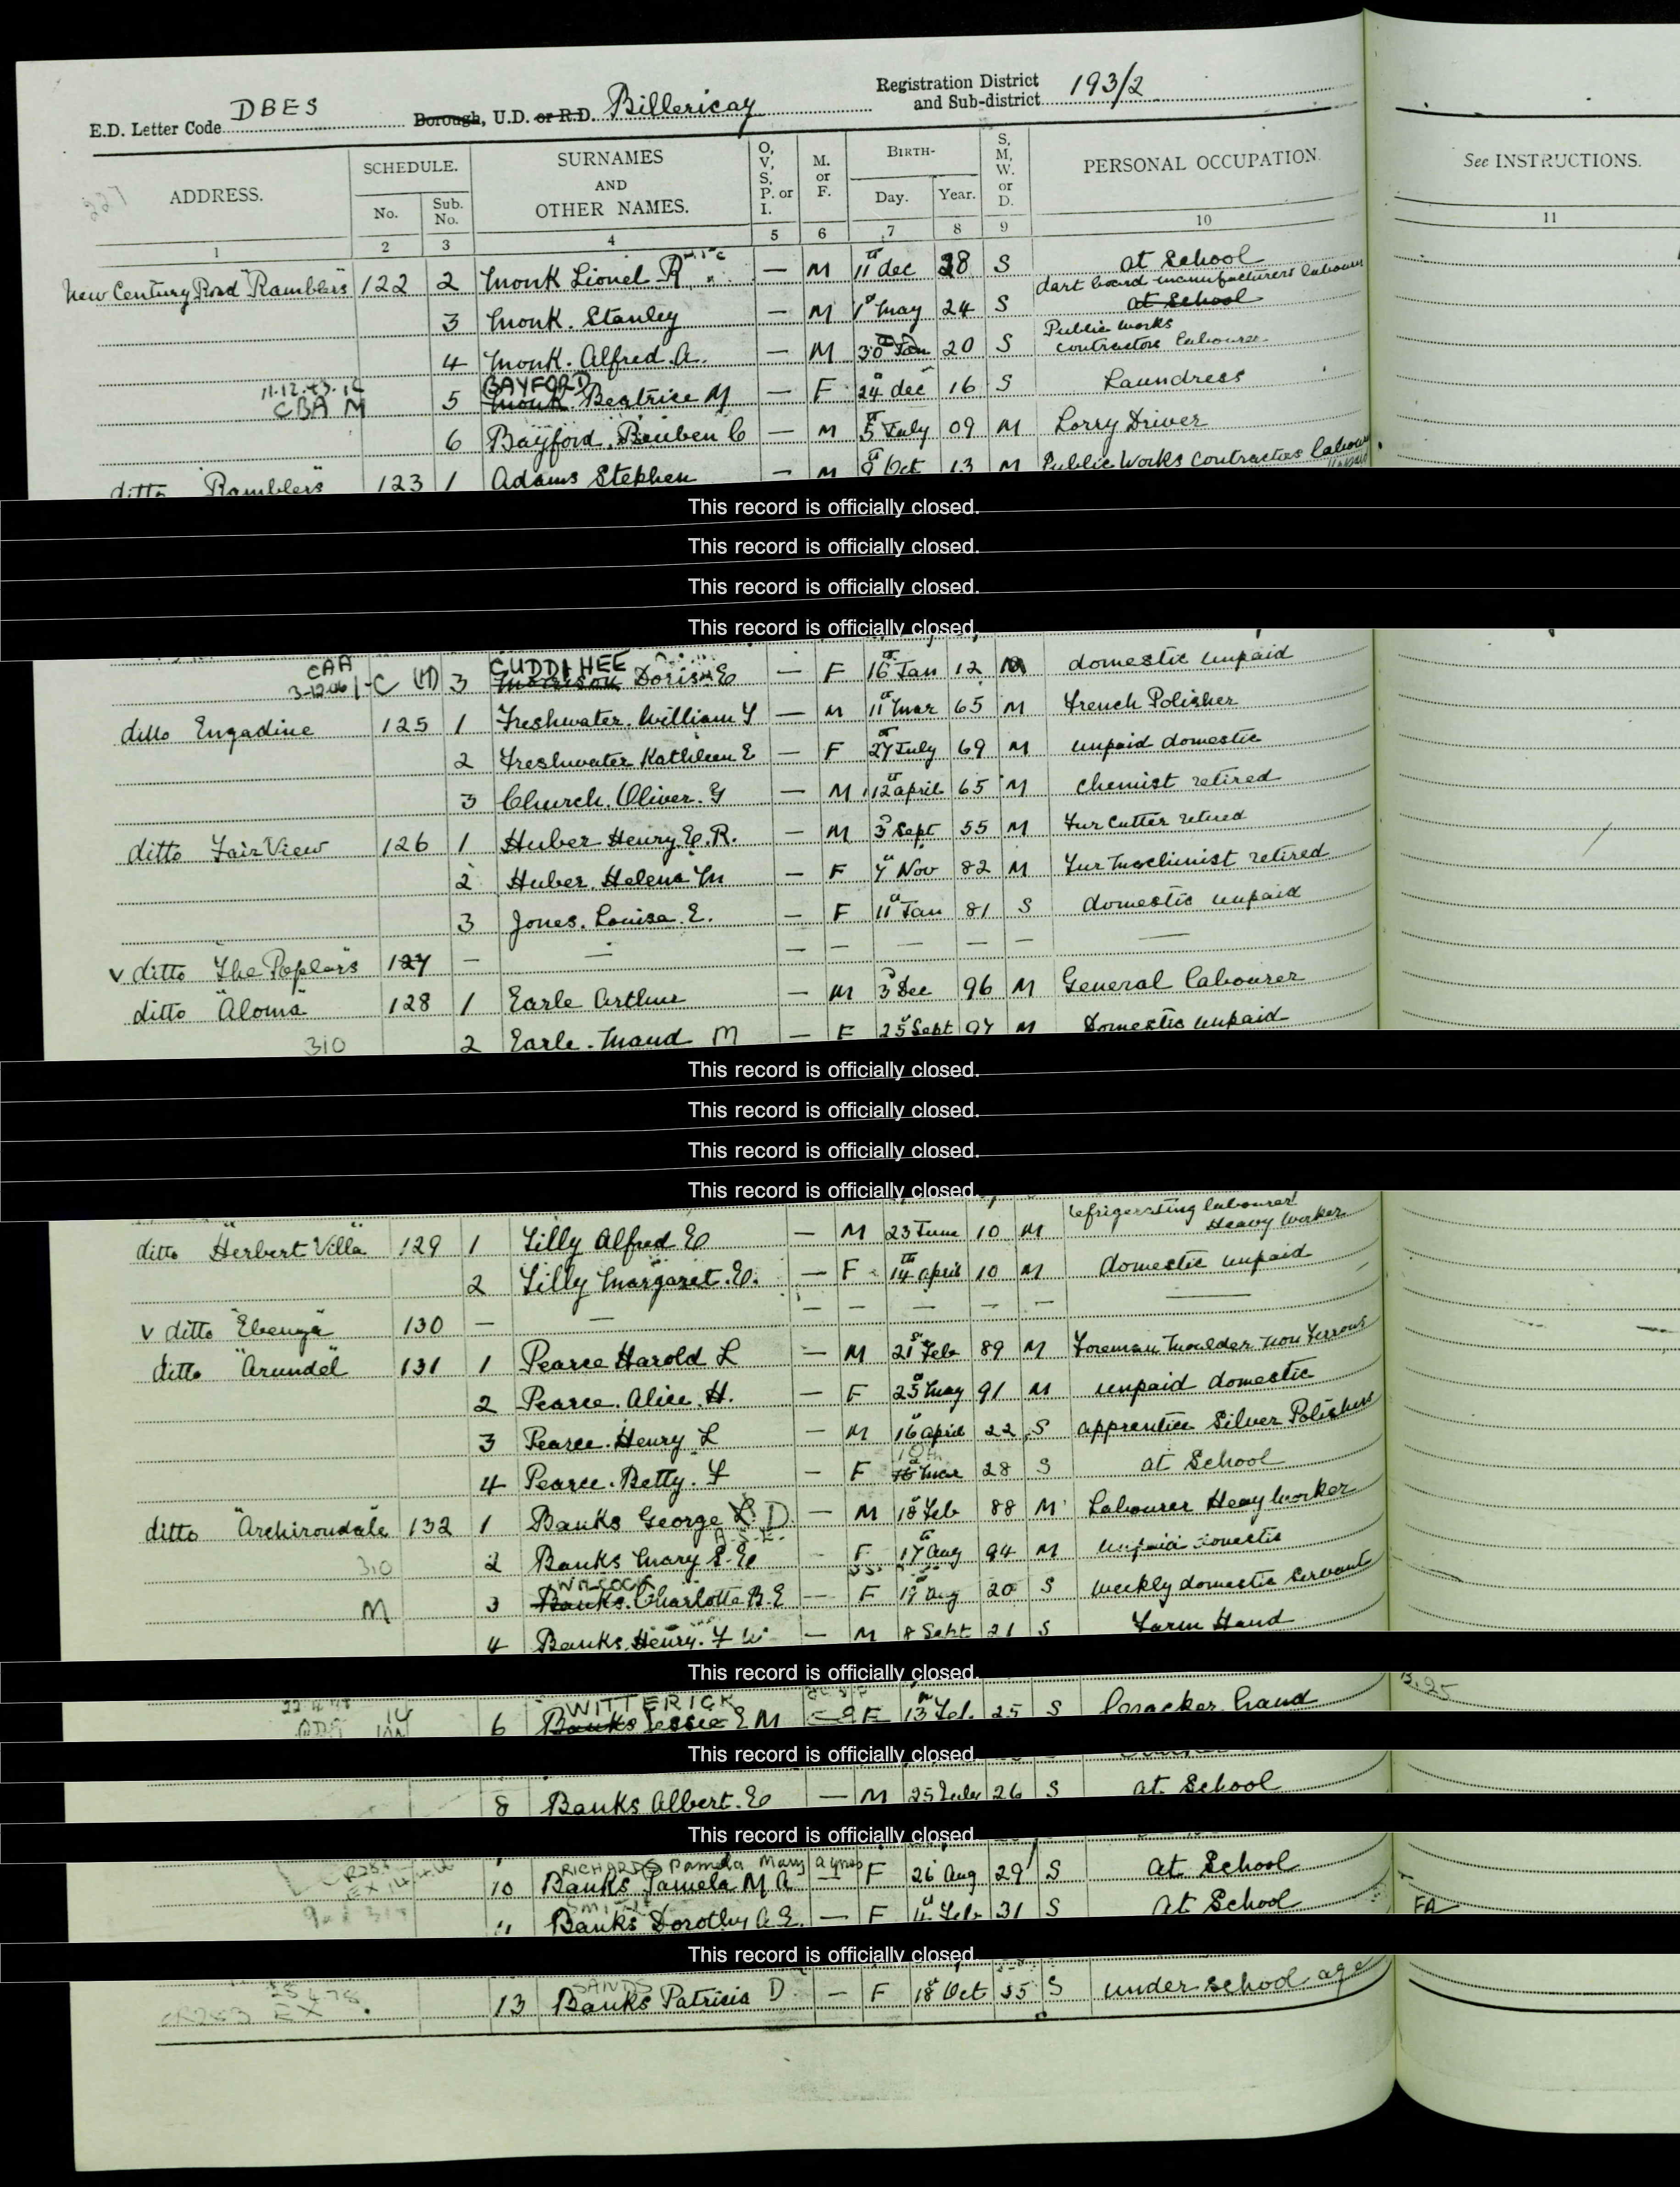 E.D. Letter Code DBES Borough, U.D. or R.D. Billericay Registration District and Sub-district 193/2
ADDRESS. SCHEDULE. No. Sub. No. SURNAMES AND OTHER NAMES. O, V, S, P. or I. M. or F. BIRTH- Day. Year. S, M, W. or D. PERSONAL OCCUPATION. See INSTRUCTIONS.
1 2 3 4 5 6 7 8 9 10 11
New Century Road "Ramblers" 122 2 Monk Lionel R — M 11th dec 28 S at School
dart board manufacturers labourer
3 Monk. Stanley — M 1st May 24 S at School
Public works
4 Monk. Alfred. A. — M 30th Jan 20 S contractors labourer
BAYFORD
CBA M 5 Monk Beatrice M — F 24th dec 16 S Laundress
6 Bayford. Reuben C — M 5th July 09 M Lorry Driver
ditto "Ramblers" 123 1 Adams Stephen — M 9th Oct 13 M Public Works Contractors Labourer
This record is officially closed.
This record is officially closed.
This record is officially closed.
This record is officially closed.
CAA CUDDIHEE
3 Morrison Doris E — F 16th Jan 12 M domestic unpaid
ditto Engadine 125 1 Freshwater. William F — M 11th Mar 65 M French Polisher
2 Freshwater Kathleen E — F 27th July 69 M unpaid domestic
3 Church. Oliver. G — M 12th april 65 M chemist retired
ditto Fair View 126 1 Huber Henry. E. R. — M 3rd Sept 55 M Fur Cutter retired
2 Huber. Helena M — F 7th Nov 82 M Fur Machinist retired
3 Jones. Louisa. E. — F 11th Jan 81 S domestic unpaid
v ditto "The Poplars" 127 — — — — — — — —
ditto "Aloma" 128 1 Earle Arthur — M 3rd Dec 96 M General Labourer
310 2 Earle. Maud M — F 25th Sept 97 M Domestic unpaid
This record is officially closed.
This record is officially closed.
This record is officially closed.
This record is officially closed.
refrigerating labourer
ditto "Herbert Villa" 129 1 Lilly Alfred E — M 23 June 10 M Heavy Worker
2 Lilly Margaret. E. — F 14th april 10 M domestic unpaid
v ditto 130 — — — — — — — —
ditto "Arundel" 131 1 Pearce Harold L — M 21st Feb 89 M Foreman Moulder non Ferrous
2 Pearce. Alice. H. — F 25th May 91 M unpaid domestic
3 Pearce. Henry L — M 16th april 22 S apprentice Silver Polisher
4 Pearce. Betty. F — F Mar 28 S at School
ditto 132 1 Banks George D — M 18th Feb 88 M Labourer Heavy Worker
310 2 Banks Mary E. E — F 17th Aug 94 M unpaid domestic
WILCOCK
M 3 Banks. Charlotte B. E — F 19th Aug 20 S weekly domestic Servant
4 Banks. Henry. F W — M 8 Sept 21 S Farm Hand
This record is officially closed.
WITTERICK
6 Banks Jessie E M F 13th Feb. 25 S Cracker hand
This record is officially closed.
8 Banks Albert. E — M 25 July 26 S at School
This record is officially closed.
RICHARDS Pamela Mary Agnes
10 Banks Pamela M A — F 26th Aug 29 S at School
SMITH
11 Banks Dorothy A. E. — F Feb 31 S at School FA
This record is officially closed.
SANDS
13 Banks Patricia D — F 18th Oct 35 S under school age
CR283 EX